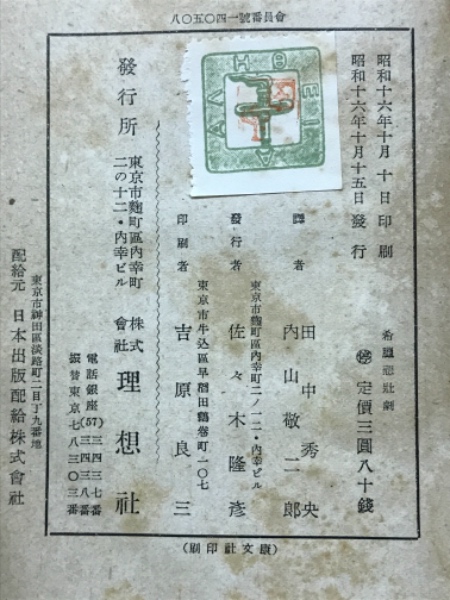 八〇五〇四一號番員會
昭和十六年十月 十日 印刷
昭和十六年十月十五日 發行
希臘悲壯劇
㊡ 定價三圓八十錢
譯者 田中秀央
內山敬二郎
東京市麴町區內幸町二ノ一二・內幸ビル
發行者 佐々木隆彥
東京市牛込區早稻田鶴卷町一〇七
印刷者 吉原良三
發行所
東京市麴町區內幸町
二の十二・內幸ビル
株式會社 理想社
電話銀座(57)三四三七番
三四三八番
振替東京七八三〇三番
東京市神田區淡路町二丁目九番地
配給元 日本出版配給株式會社
(康文社印刷)